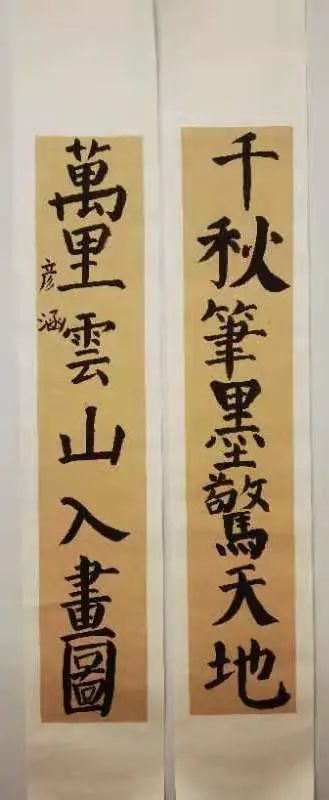 千秋筆墨驚天地
萬里雲山入畫圖
彦涵